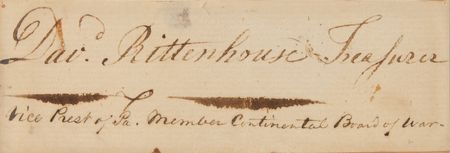 Dav.d Rittenhouse Treasurer
Vice Prest of Pa. Member Continental Board of War-